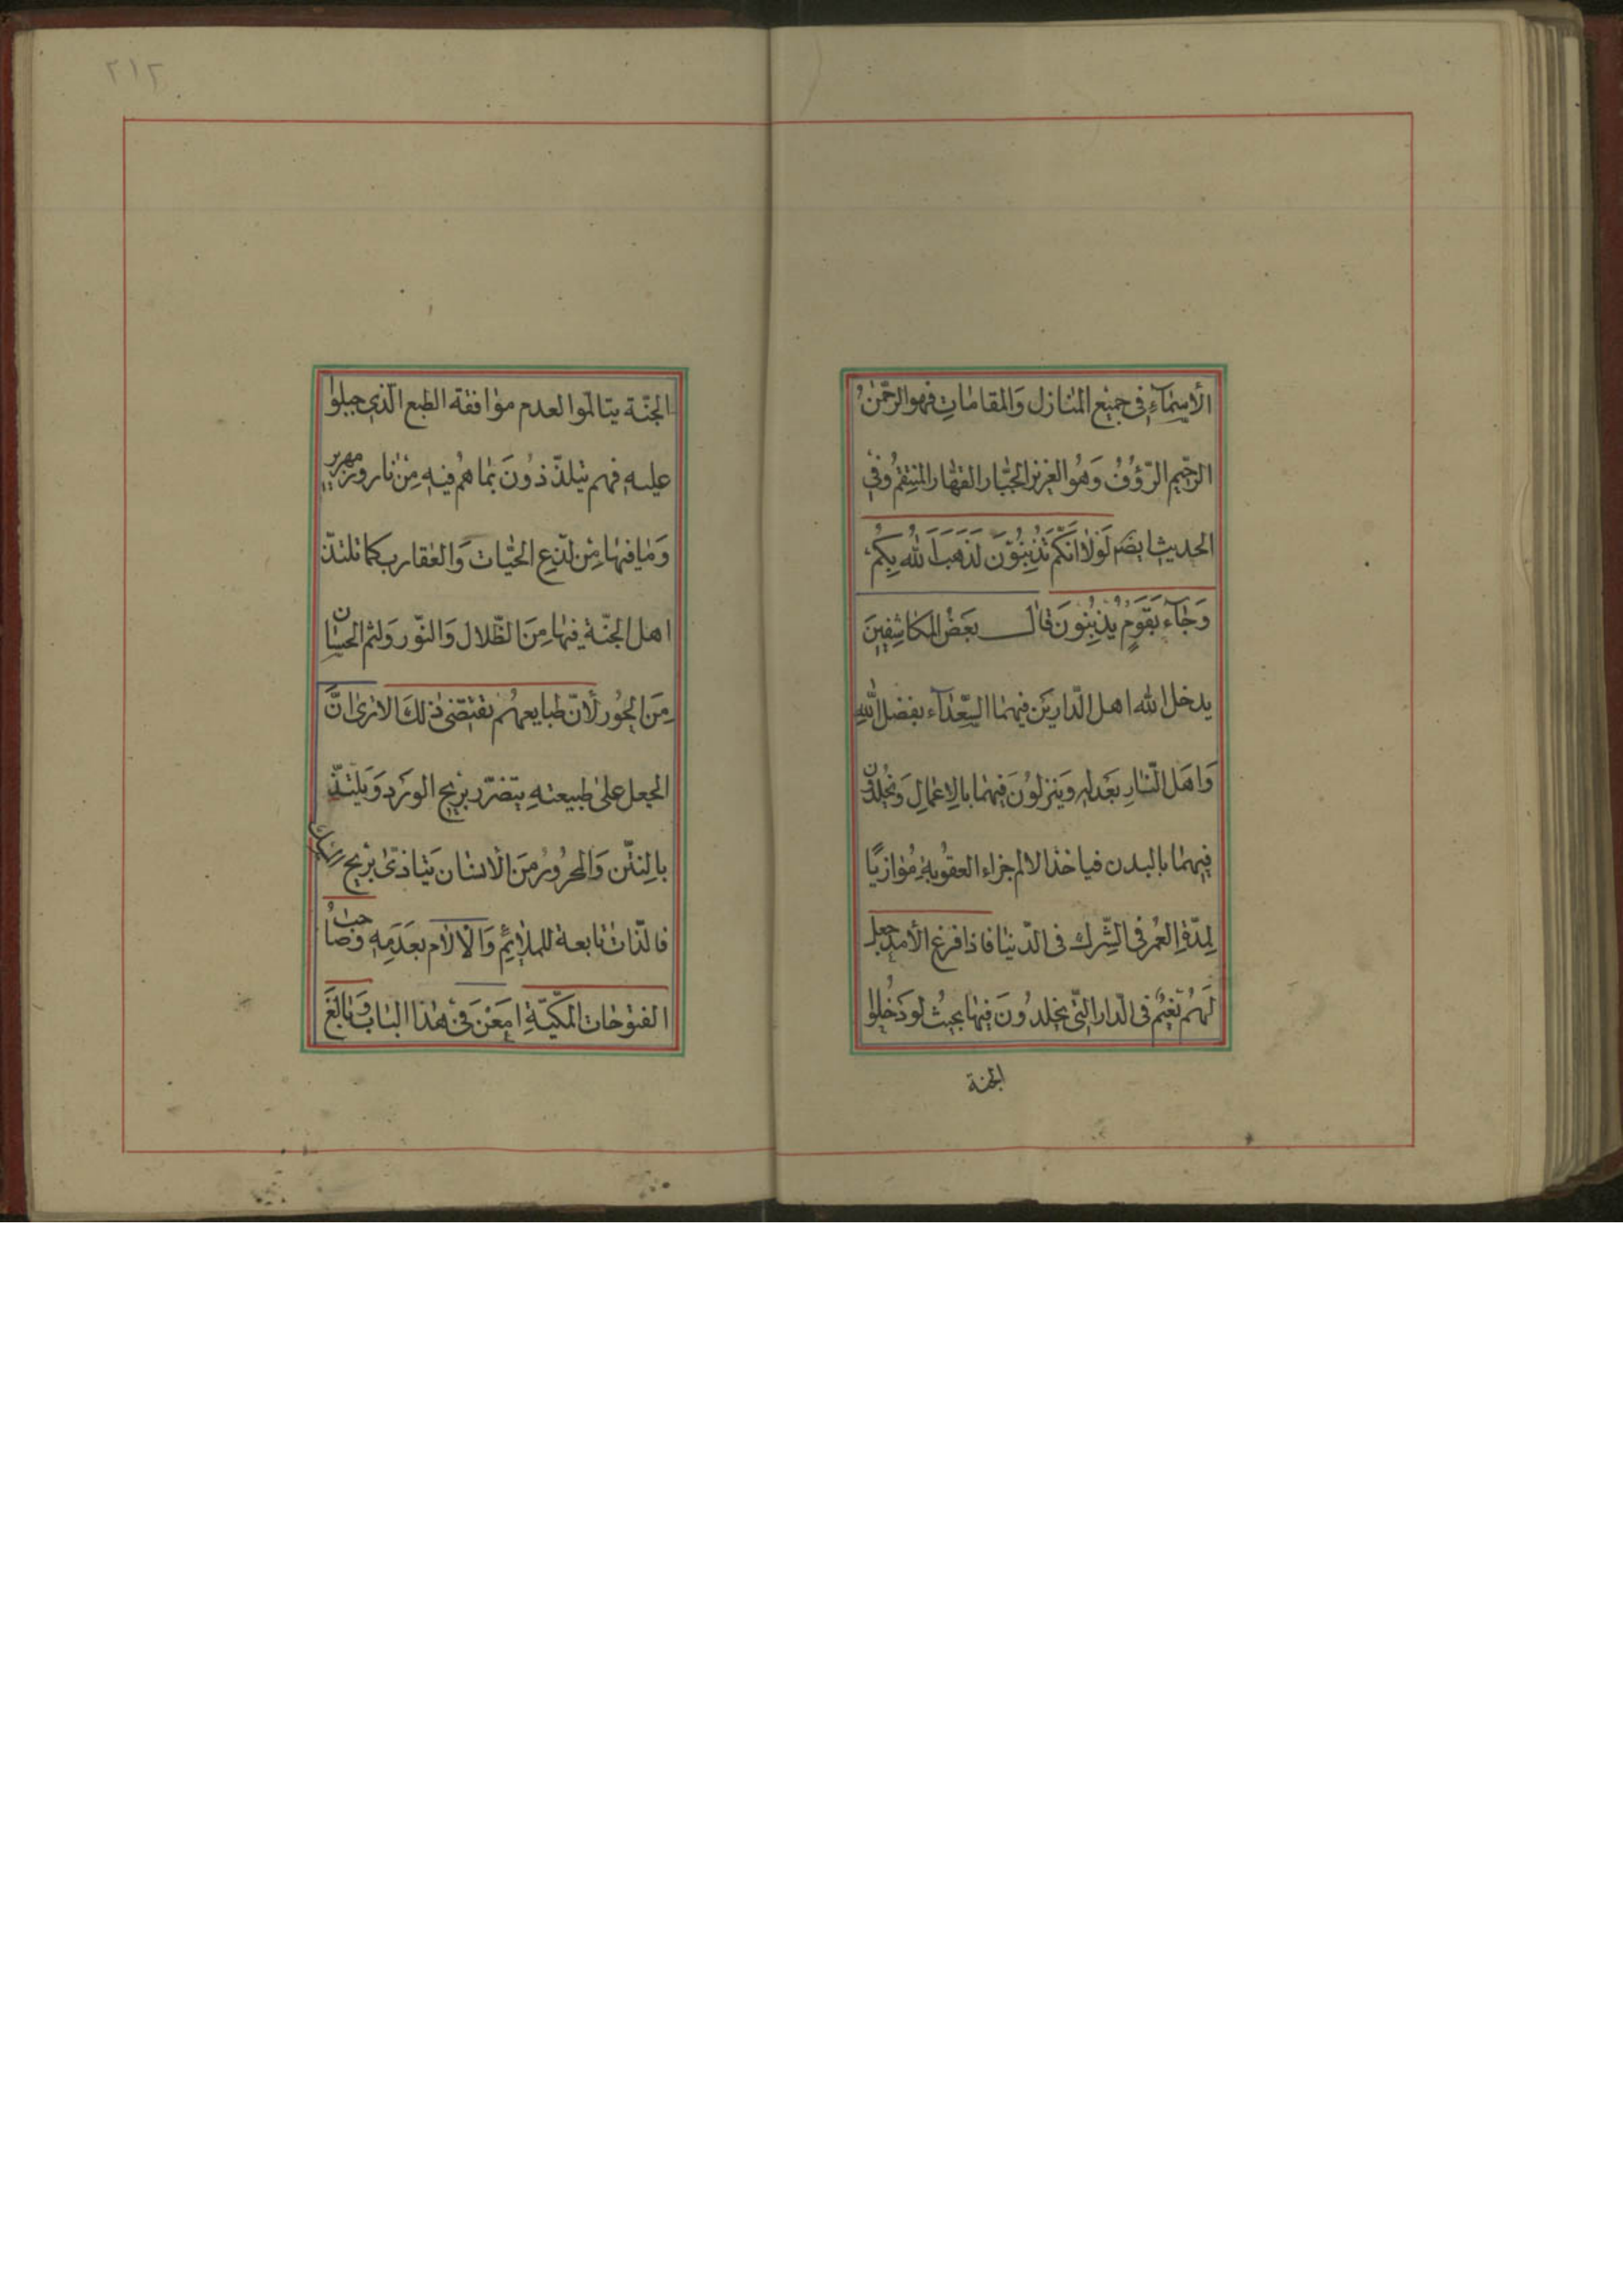 الأسمآءِ فى جميع المنازل وَالمقاماتِ فهو الرّحمٰنُ
الرّحيم الرّؤفُ وَهُو العزيز الجبّار القهّار المنتقمُ وَفى
الحديث ايضًا لَوْلا انّكم تذْنِبُوْنَ لَذَهَبَ اللهُ بِكُمْ
وَجٰآءَ بقَوْمٍ يذْنِبُونَ قال بعَضُ المكاشِفينَ
يدخل الله اهل الدّارينَ فيهما السّعَدآء بفضل اللهِ
وَاهَل النّارِ بعَدلهِ وَينزلوُنَ فيهما بالاعمالِ وَيخُلدون
فيهما بالبدن فياخذ الالم جزاء العقوُبةِ مُوٰازيًا
لمِدّةِ العُمُر فى الشّرك فى الدّنيا فاذا فرغ الأمد جعل
لَهُم نَعيمٌ فى الدار الّتى يخلدوُنَ فيها بحيثُ لوَدَخُلوا
الجنة
٢١٢
الجنّة يتالّموا لعدم موٰافقة الطبع الّذى جبلوا
عليهِ فهم يتلذّذوُنَ بمٰا هُم فيهِ مِنْ نار وَزمهرير
وَمٰا فيهٰا مِنْ لَدْغِ الحيّات وَالعقارب كما تلتذّ
اهل الجنّة فيهٰا مِنَ الظّلال وَالنّور وَلثم الحسٰان
مِنَ الحُور لأنّ طبايعهُم تقتضى ذٰلكَ الا ترىٰ انَّ
الجعل علىٰ طبيعتهِ يتضرّر بريح الورَد وَيلتذّ
بالنتن وَالمحروُر مِنَ الأنسان يَتاذّىٰ بريح المسك
فالّذات تابعة للملايمِ وَالالام بعَدَمِهِ وَصٰاحبُ
الفتوُحات المكيّةِ امعَنَ فى هٰذا البٰاب وَبٰالغَ